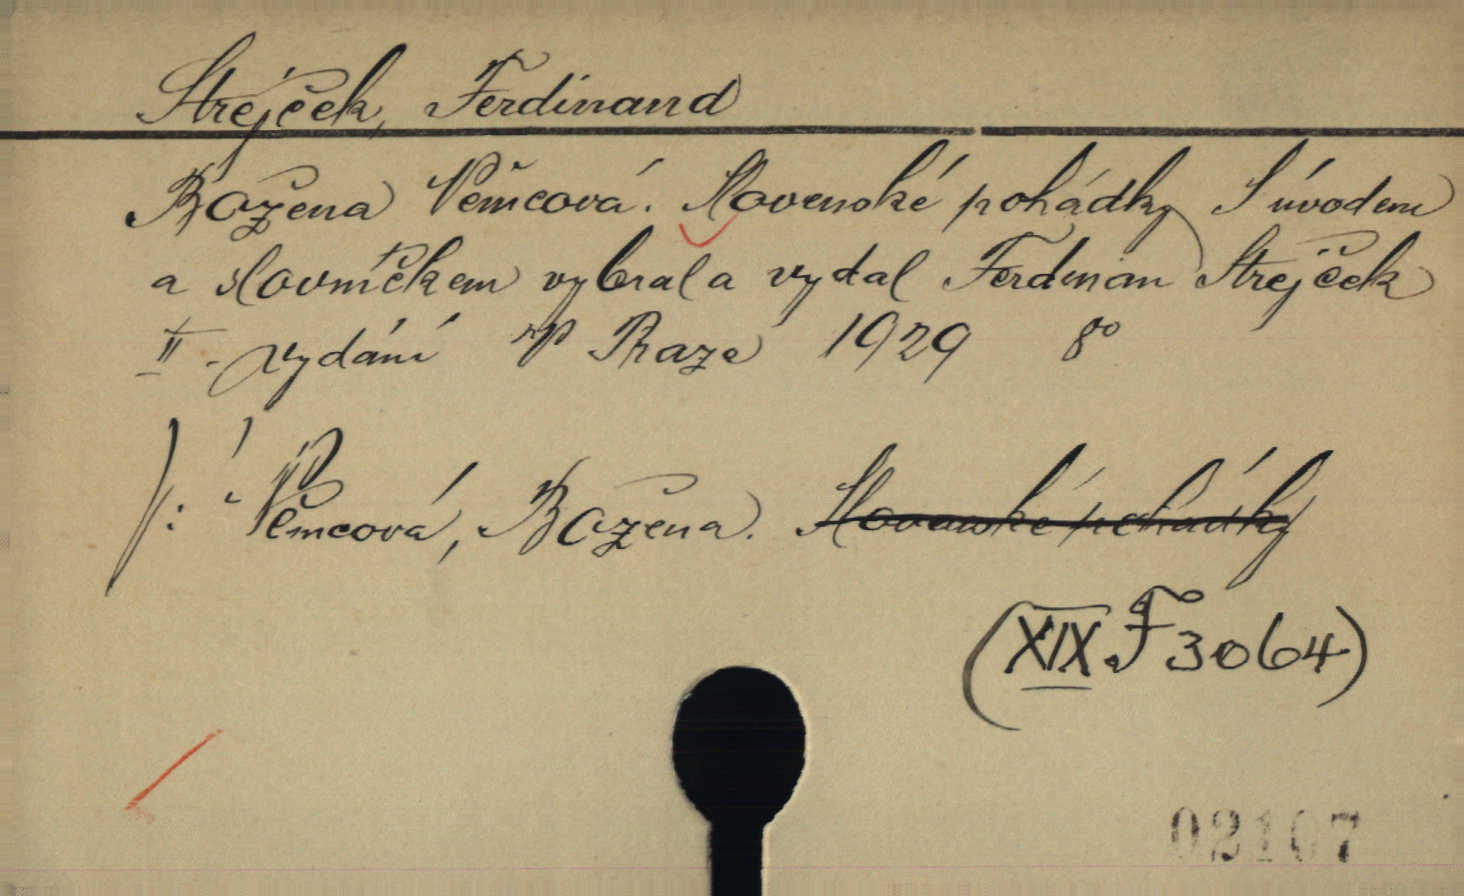 Strejček, Ferdinand
Božena Němcová. Slovenské pohádky S úvodem
a slovníčkem vybral a vydal Ferdinan Strejček
II. vydání V Praze 1929 8°
Němcová, Božena. Slovenské pohádky
(XIX F 3064)
02107